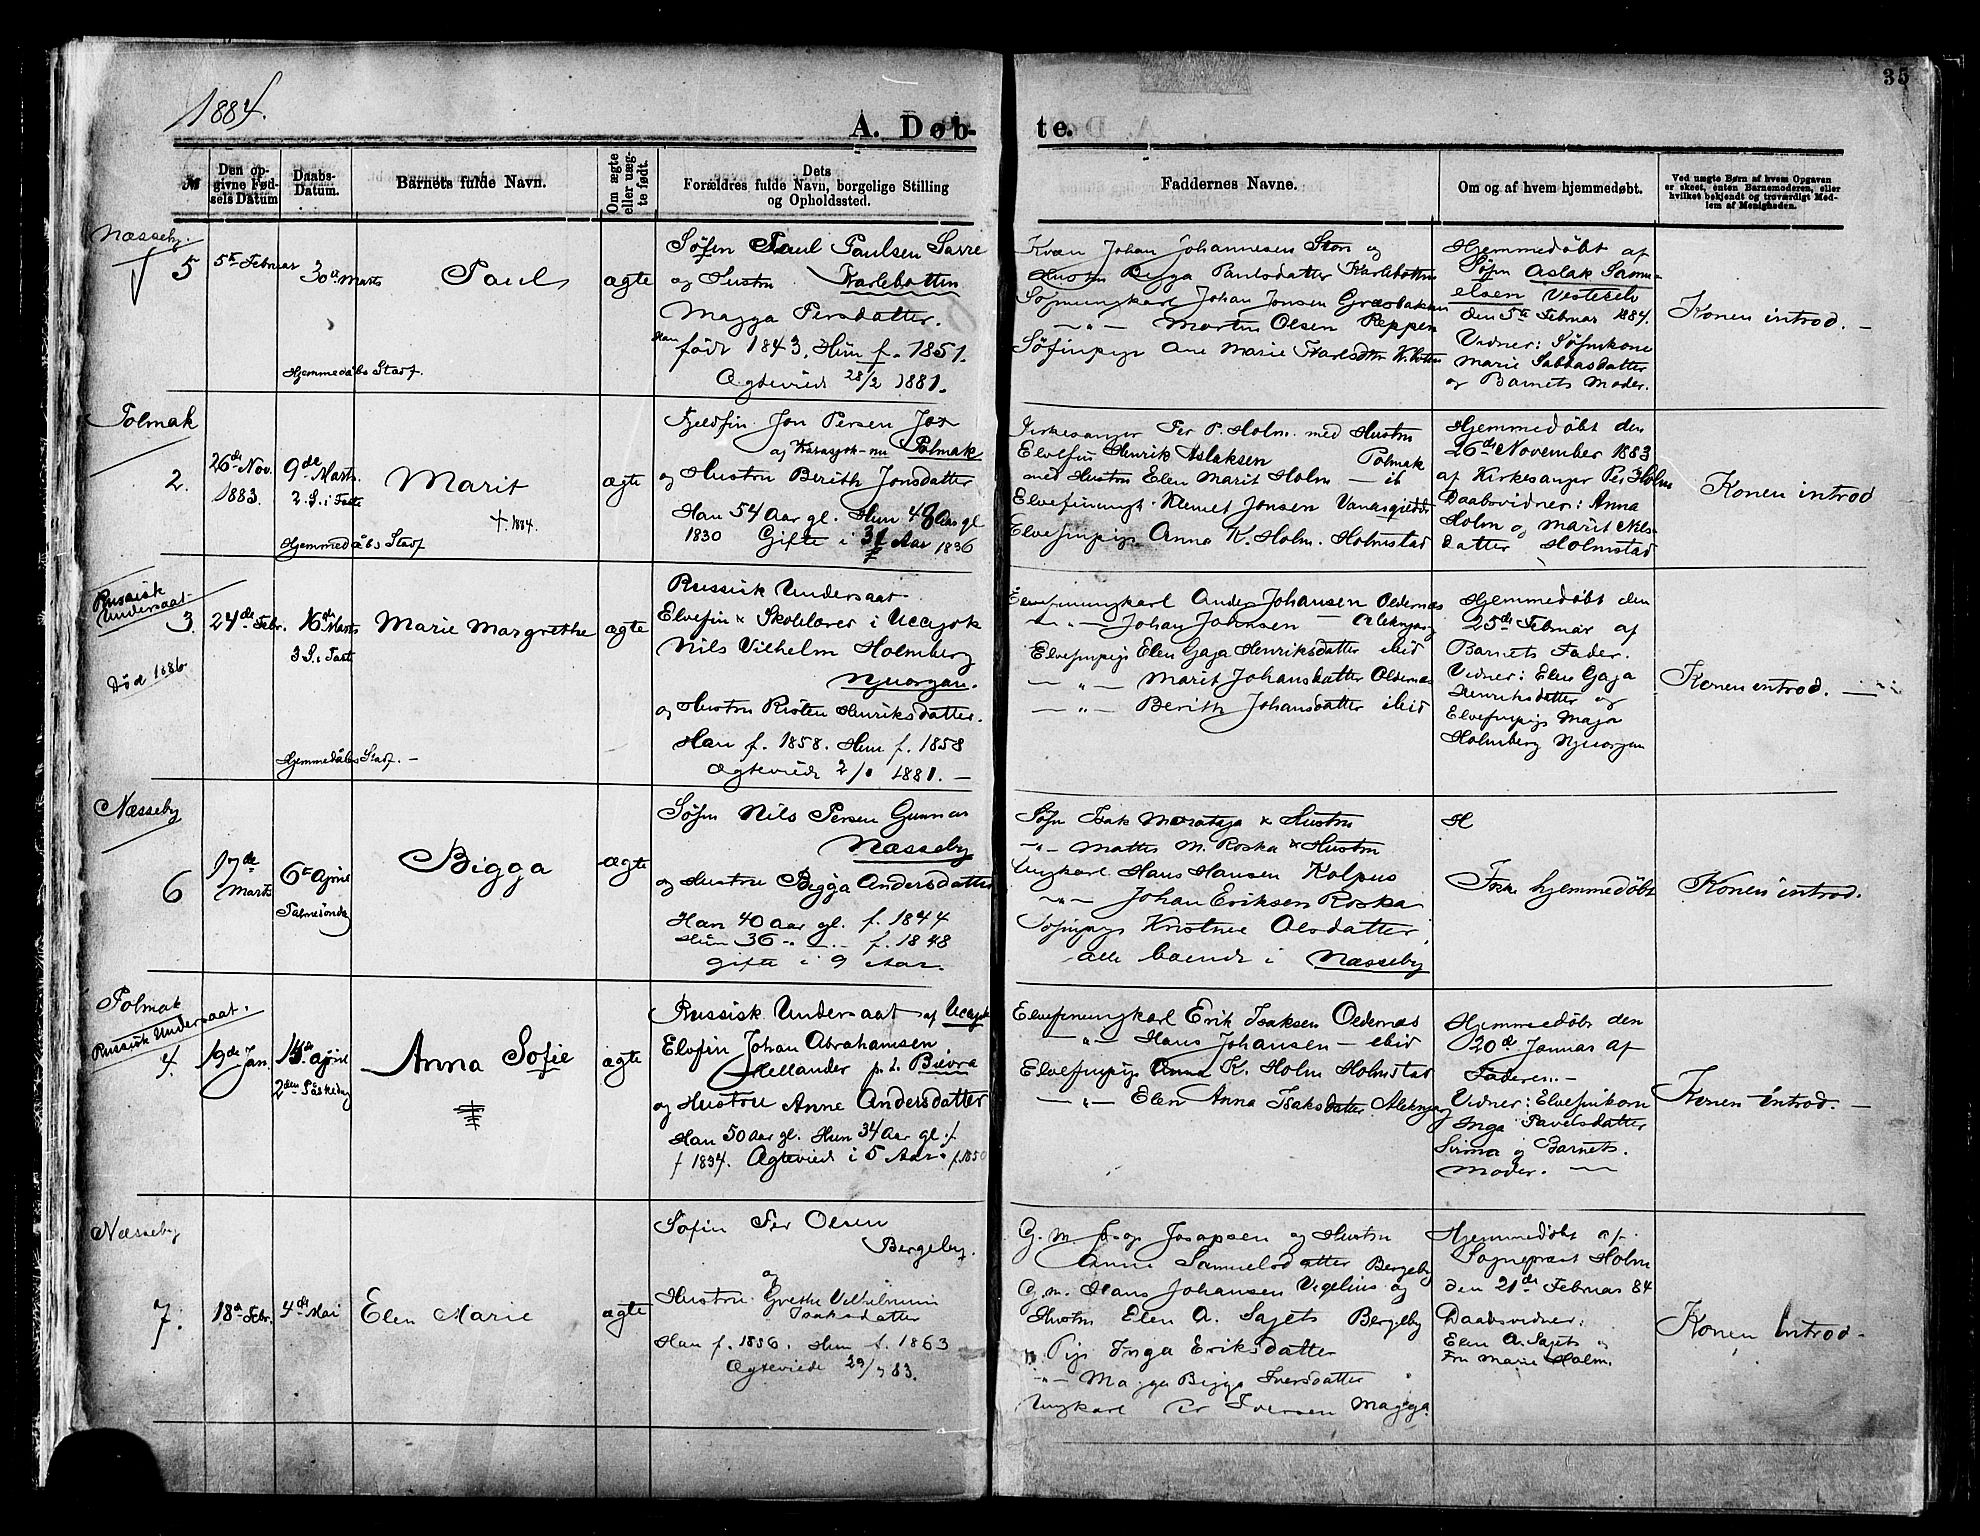 35
1884.
A. Døb-
te.
№
Den op-
givne Fød-
sels Datum
Daabs-
Datum.
Barnets fulde Navn.
Om ægte
eller uæg-
te født.
Dets
Forældres fulde Navn, borgelige Stilling
og Opholdssted.
Faddernes Navne.
Om og af hvem hjemmedøbt.
Ved uægte Børn af hvem Opgaven
er skeet, enten Barnemoderen, eller
hvilket bekjendt og troværdigt Med-
lem af Menigheden.
Næsseby
5
5te Februar
30te Marts
Paul
ægte
Hjemmedøbs Stadf.
Søfin Paul Paulsen Savre
og Hustru Karlebotten
Magga Persdatter.
Han født 1843. Hun f. 1851.
Ægteviede 28/2 1881.
Kvæn Johan Johannesen Stor og
Hustru Bigga Paulsdatter Karlebotten
Søfinungkarl Johan Jonsen Græsbakken
—„— Morten Olsen Reppen
Søfinpige Ane Marie Karlsdttr K.botten
Hjemmedøbt af
Søfin Aslak Samu-
elsen Vesterelv
den 5te Februar 1884.
Vidner: Søfinkone
Marie Sabbasdatter
og Barnets Moder.
Konen introd. —
Polmak
2.
26de Nov.
1883.
9de Marts.
2. S. i Faste
Marit
† 1884.
ægte
Hjemmedøbs Stadf
Fjeldfin Jon Persen Jox
af Karasjok - nu Polmak
og Hustru Berith Jonsdatter
Han 54 Aar gl. Hun 48 Aar gl
1830 Gifte i 31 Aar 1836
Kirkesanger Per P. Holm. med Hustru
Elvefin Henrik Aslaksen Polmak
med Hustru Elen Marit Holm — ib
Elvefinungk. Klemet Jonsen
Elvefinpige Anna K. Holm. Holmstad
Hjemmedøbt den
26de November 1883
af Kirkesanger Per Holm
Daabsvidner: Anna
Holm og Marit Nils-
datter Holmstad
Konen introd
Russisk
Undersaat.
3.
Død 1886
24de Febr.
16de Marts
3 S. i Faste
Marie Margrethe
ægte
Hjemmedøbs Stadf. —
Russisk Undersaat
Elvefin & Skolelærer i Utsjok
Nils Vilhelm Holmberg
Njuorgan.
og Hustru Risten Henriksdatter.
Han f. 1858. Hun f. 1858
Ægteviede 2/1 1881. —
Elvefinungkarl Anders Johansen Oldernæs
—„— Johan Johnsen — Aleknjarg
Elvefinpige Elen Gaja Henriksdatter ibid
—„— Marit Johansdatter Oldernæs
—„— Berith Johansdatter ibid
Hjemmedøbt den
25de Februar af
Barnets Fader.
Vidner: Elen Gaja
Henriksdatter og
Elvefinpige Maja
Holmberg Njuorgan
Konen introd. —
Næsseby
6
17de
Marts
6te April
Palmesøndag
Bigga
ægte
Søfin Nils Persen Gunnar
Næsseby
og Hustru Bigga Andersdatter
Han 40 Aar gl. f. 1844
Hun 36 -„- f. 1848
gifte i 9 Aar.
Søfin Isak Morataja & Hustru
-„- Mattis M. Roska & Hustru
Ungkarl Hans Hansen Kolpus
-„- Johan Eriksen Roska
Søfinpige Kristine Olsdatter
alle boende i Næsseby
H
Ikke hjemmedøbt
Konen introd.
Polmak
Russisk Undersaat.
4.
19de Jan.
14de April
2den Påskedag
Anna Sofie
ægte
Russisk Undersaat af Utsjok
Elvefin Johan Abrahamsen
Hellander p. t. Bievra
og Hustru Anne Andersdatter
Han 50 Aar gl. Hun 34 Aar gl.
f 1834. Ægteviede i 5 Aar. f. 1850
Elvefinungkarl Erik Isaksen Oldernæs
—„— Hans Johansen — ibid
Elvefinpige Anna K. Holm Holmstad
—„— Elen Anna Isaksdatter Aleknjarg
Hjemmedøbt den
20de Januar af
Faderen. —
Vidner: Elvefinkone
Inga Pavelsdatter
Sirma og Barnets
Moder. —
Konen introd. —
Næsseby
7.
18de Febr.
4de Mai
Elen Marie
ægte
Søfin Per Olsen
Bergeby.
og
Hustru Grethe Vilhelmine
Isaksdatter
Han f. 1856. Hun f. 1863
Ægteviede 29/7 83.
G. m. Josapsen og Hustru
Anne Samuelsdatter Bergeby
G. m. Hans Johansen Vigelius og
Hustru Elen A. Sajets Bergeby
Pige Inga Eriksdatter
-„- Magga Bigga Iversdatter
Ungkarl Per Iversen Magga
Hjemmedøbt af
Sogneprest Holm
den 21de Februar 84
Daabsvidner:
Elen A. Sajets og
Fru Marie Holm.
Konen introd.